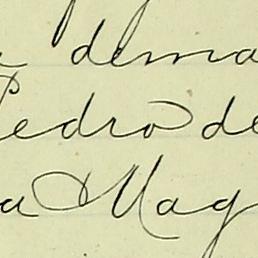 a dema
Pedro de
a Mag